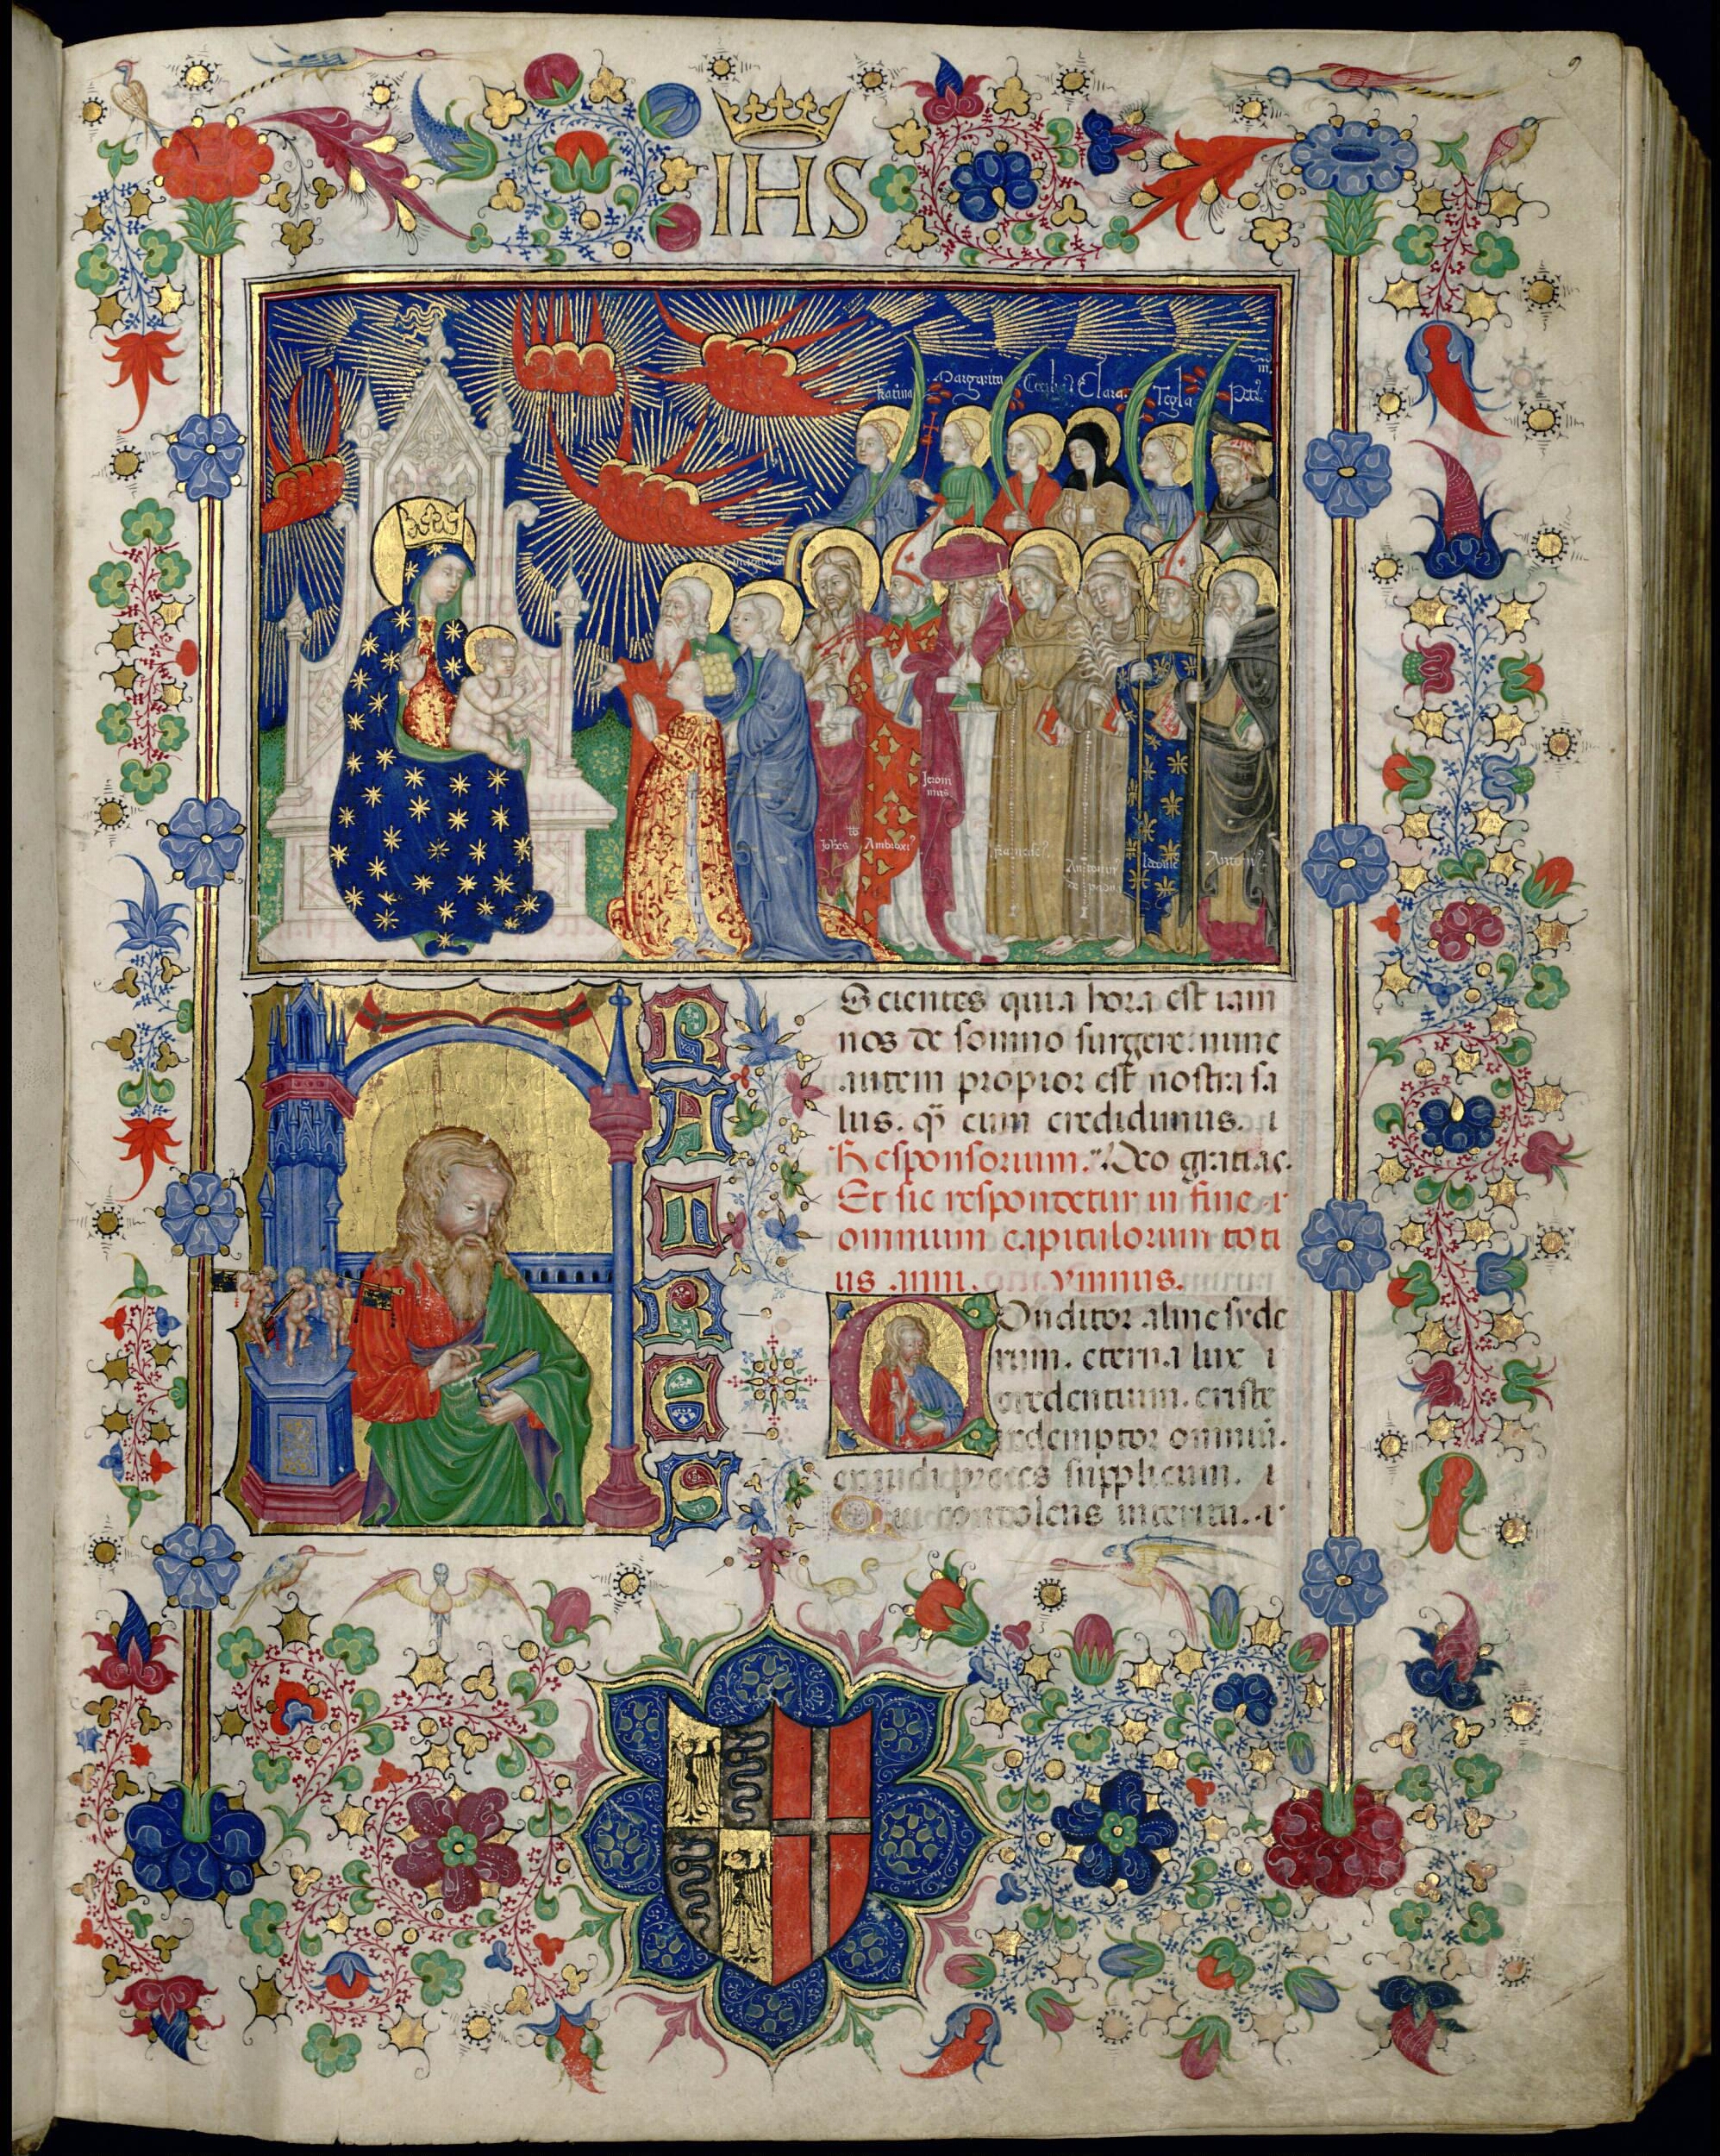 9
IHS
Katerina Margarita Cecilia Clara Tegla Petrus m̃
Johēs bb̃
Ambroxiꝰ
Jeroni
mus
Franciscꝰ
Antoniuꝰ
de padua
Ladouicꝰ
Antoniꝰ
FRATRES
Scientes quia hora est iam
nos de somno surgere. nunc
autem propior est nostra sa
lus. qȝ cum credidimus.
Responsorium. Deo gratias.
Et sic respondetur in fine
omnium capitulorum toti
us anni. ymnus.
Conditor alme syde
rum. eterna lux
credentium. criste
redemptor omniū.
exaudi preces supplicum.
Qui condolens interitu.